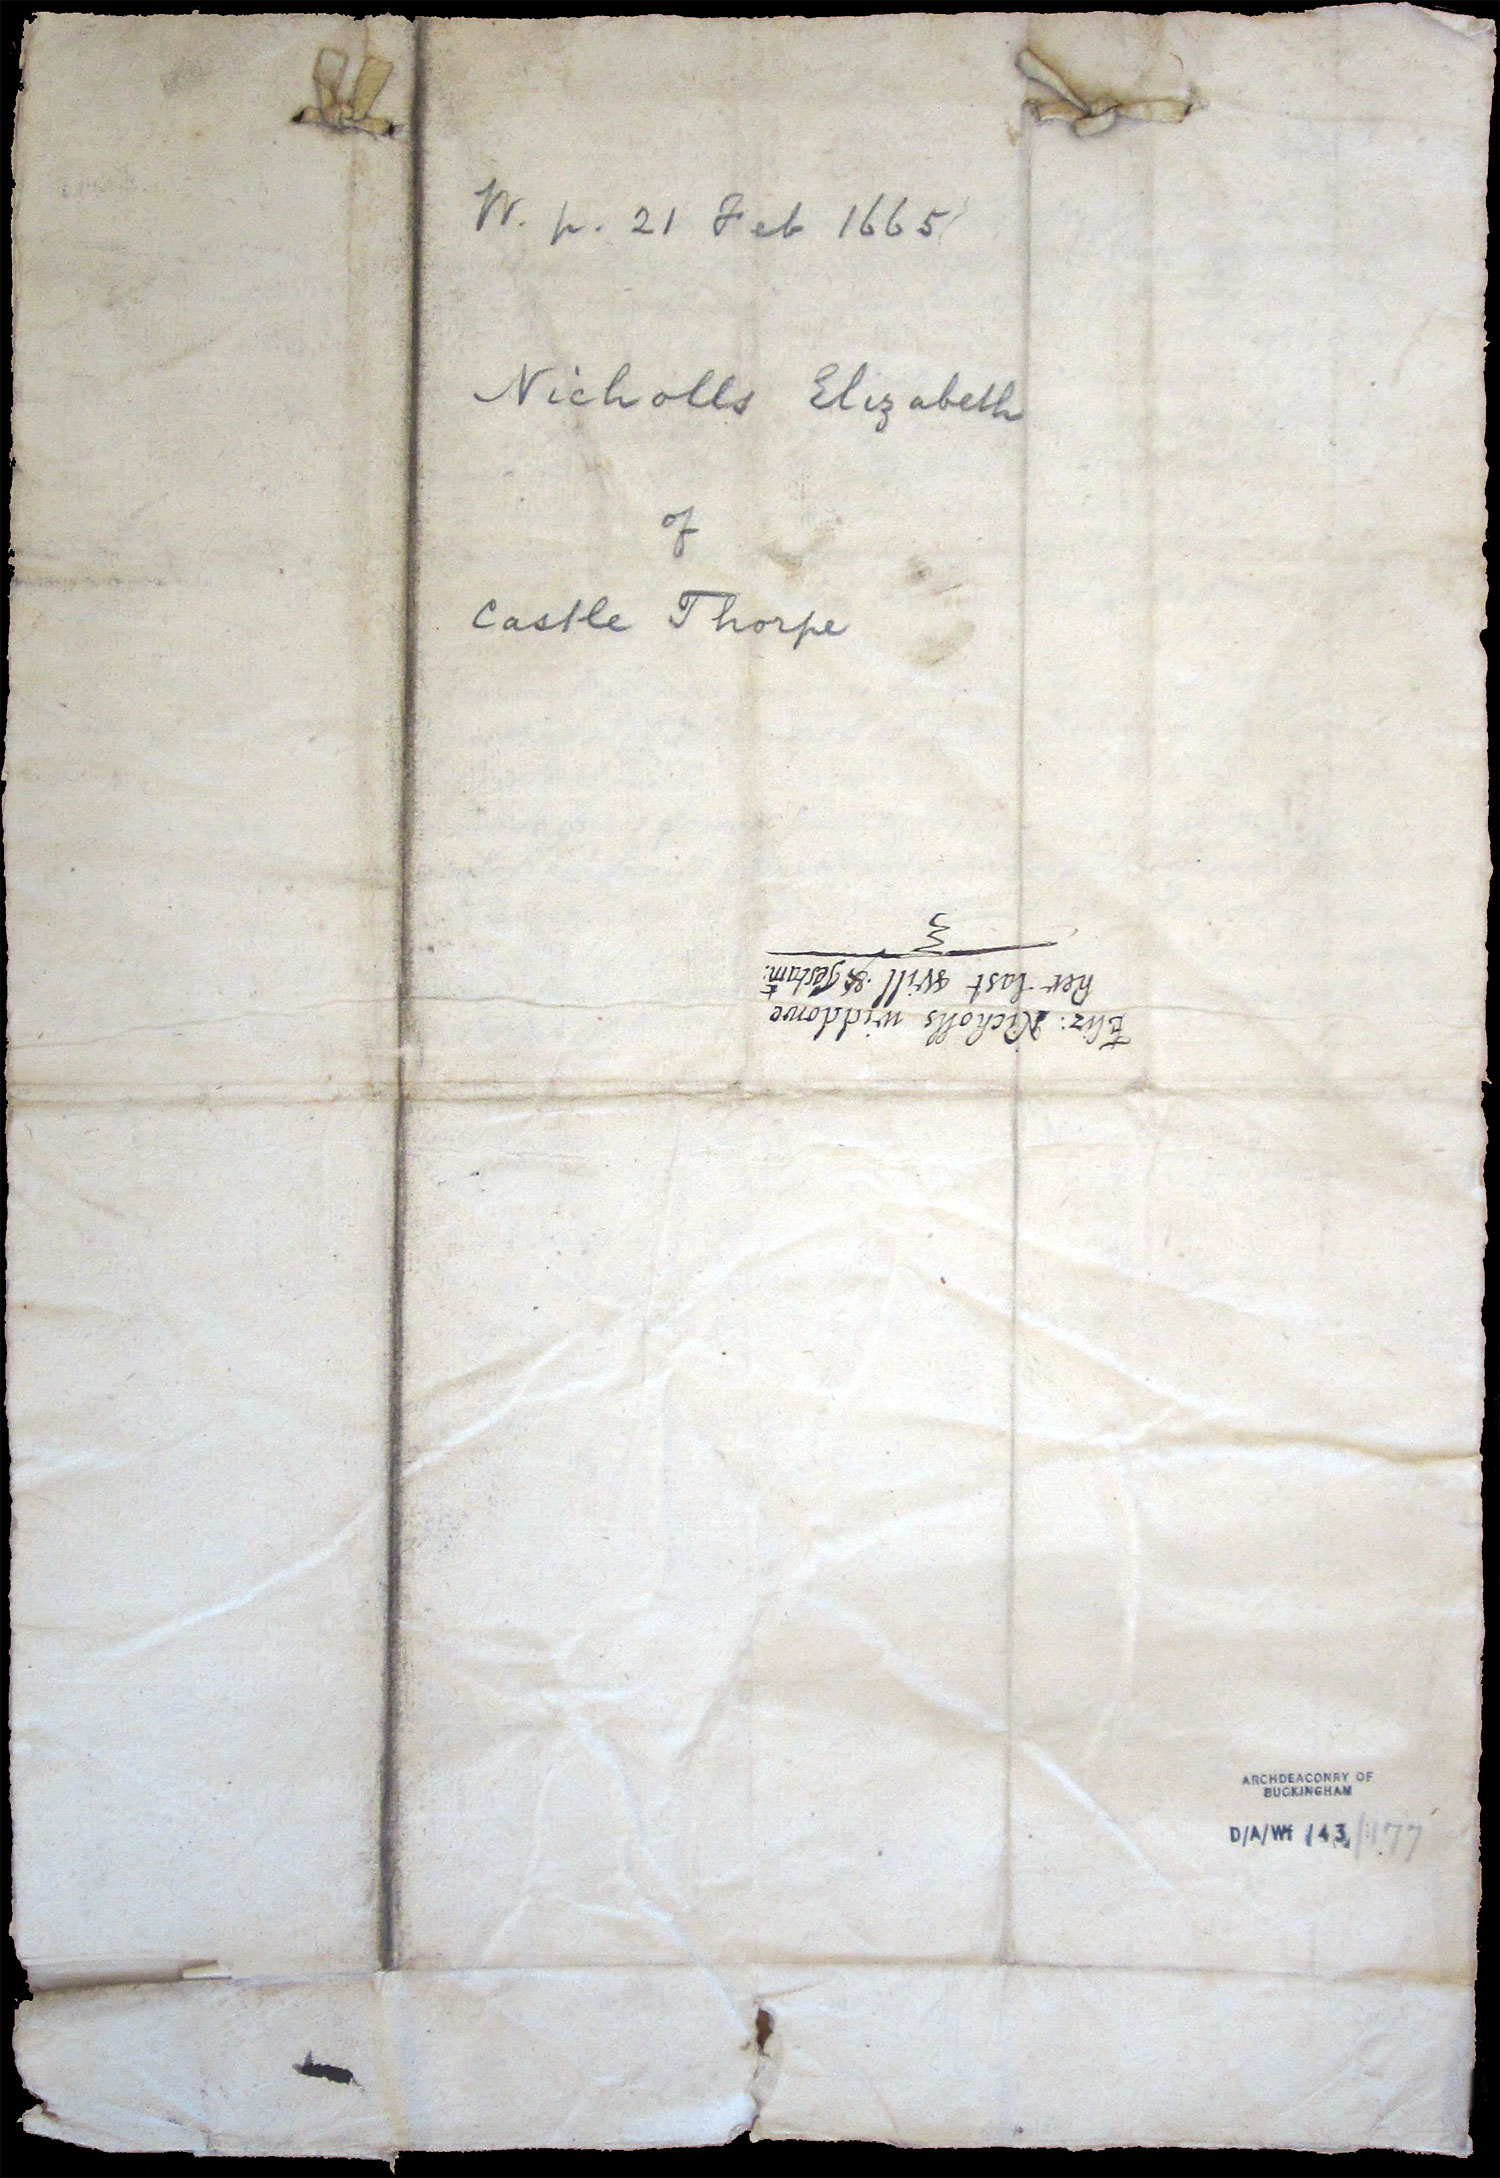 W. p. 21 Feb 1665
Nicholls Elizabeth
of
Castle Thorpe
Eliz: Nicholls widdowe
her last Will & Testamt:
ARCHDEACONRY OF
BUCKINGHAM
D/A/Wf /43/177